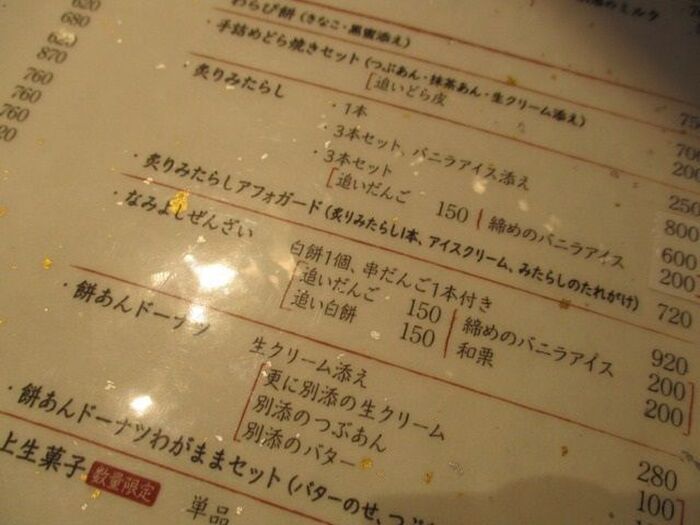 620
680
620
870
760
760
760
わらび餅(きなこ・黒蜜添え)
・手詰めどら焼きセット(つぶあん・抹茶あん・生クリーム添え)
[追いどら皮
・炙りみたらし
・1本 250
・3本セット、バニラアイス添え 800
・3本セット 600
[追いだんご 150 | 締めのバニラアイス 200]
・炙りみたらしアフォガード(炙りみたらし1本、アイスクリーム、みたらしのたれがけ) 720
・なみよしぜんざい
白餅1個、串だんご1本付き 920
[追いだんご 150 | 締めのバニラアイス 200]
追い白餅 150 | 和栗 200]
・餅あんドーナツ
生クリーム添え 280
[更に別添の生クリーム 100]
別添のつぶあん
別添のバター
・餅あんドーナツわがままセット(バターのせ、つぶ
上生菓子 数量限定
単品